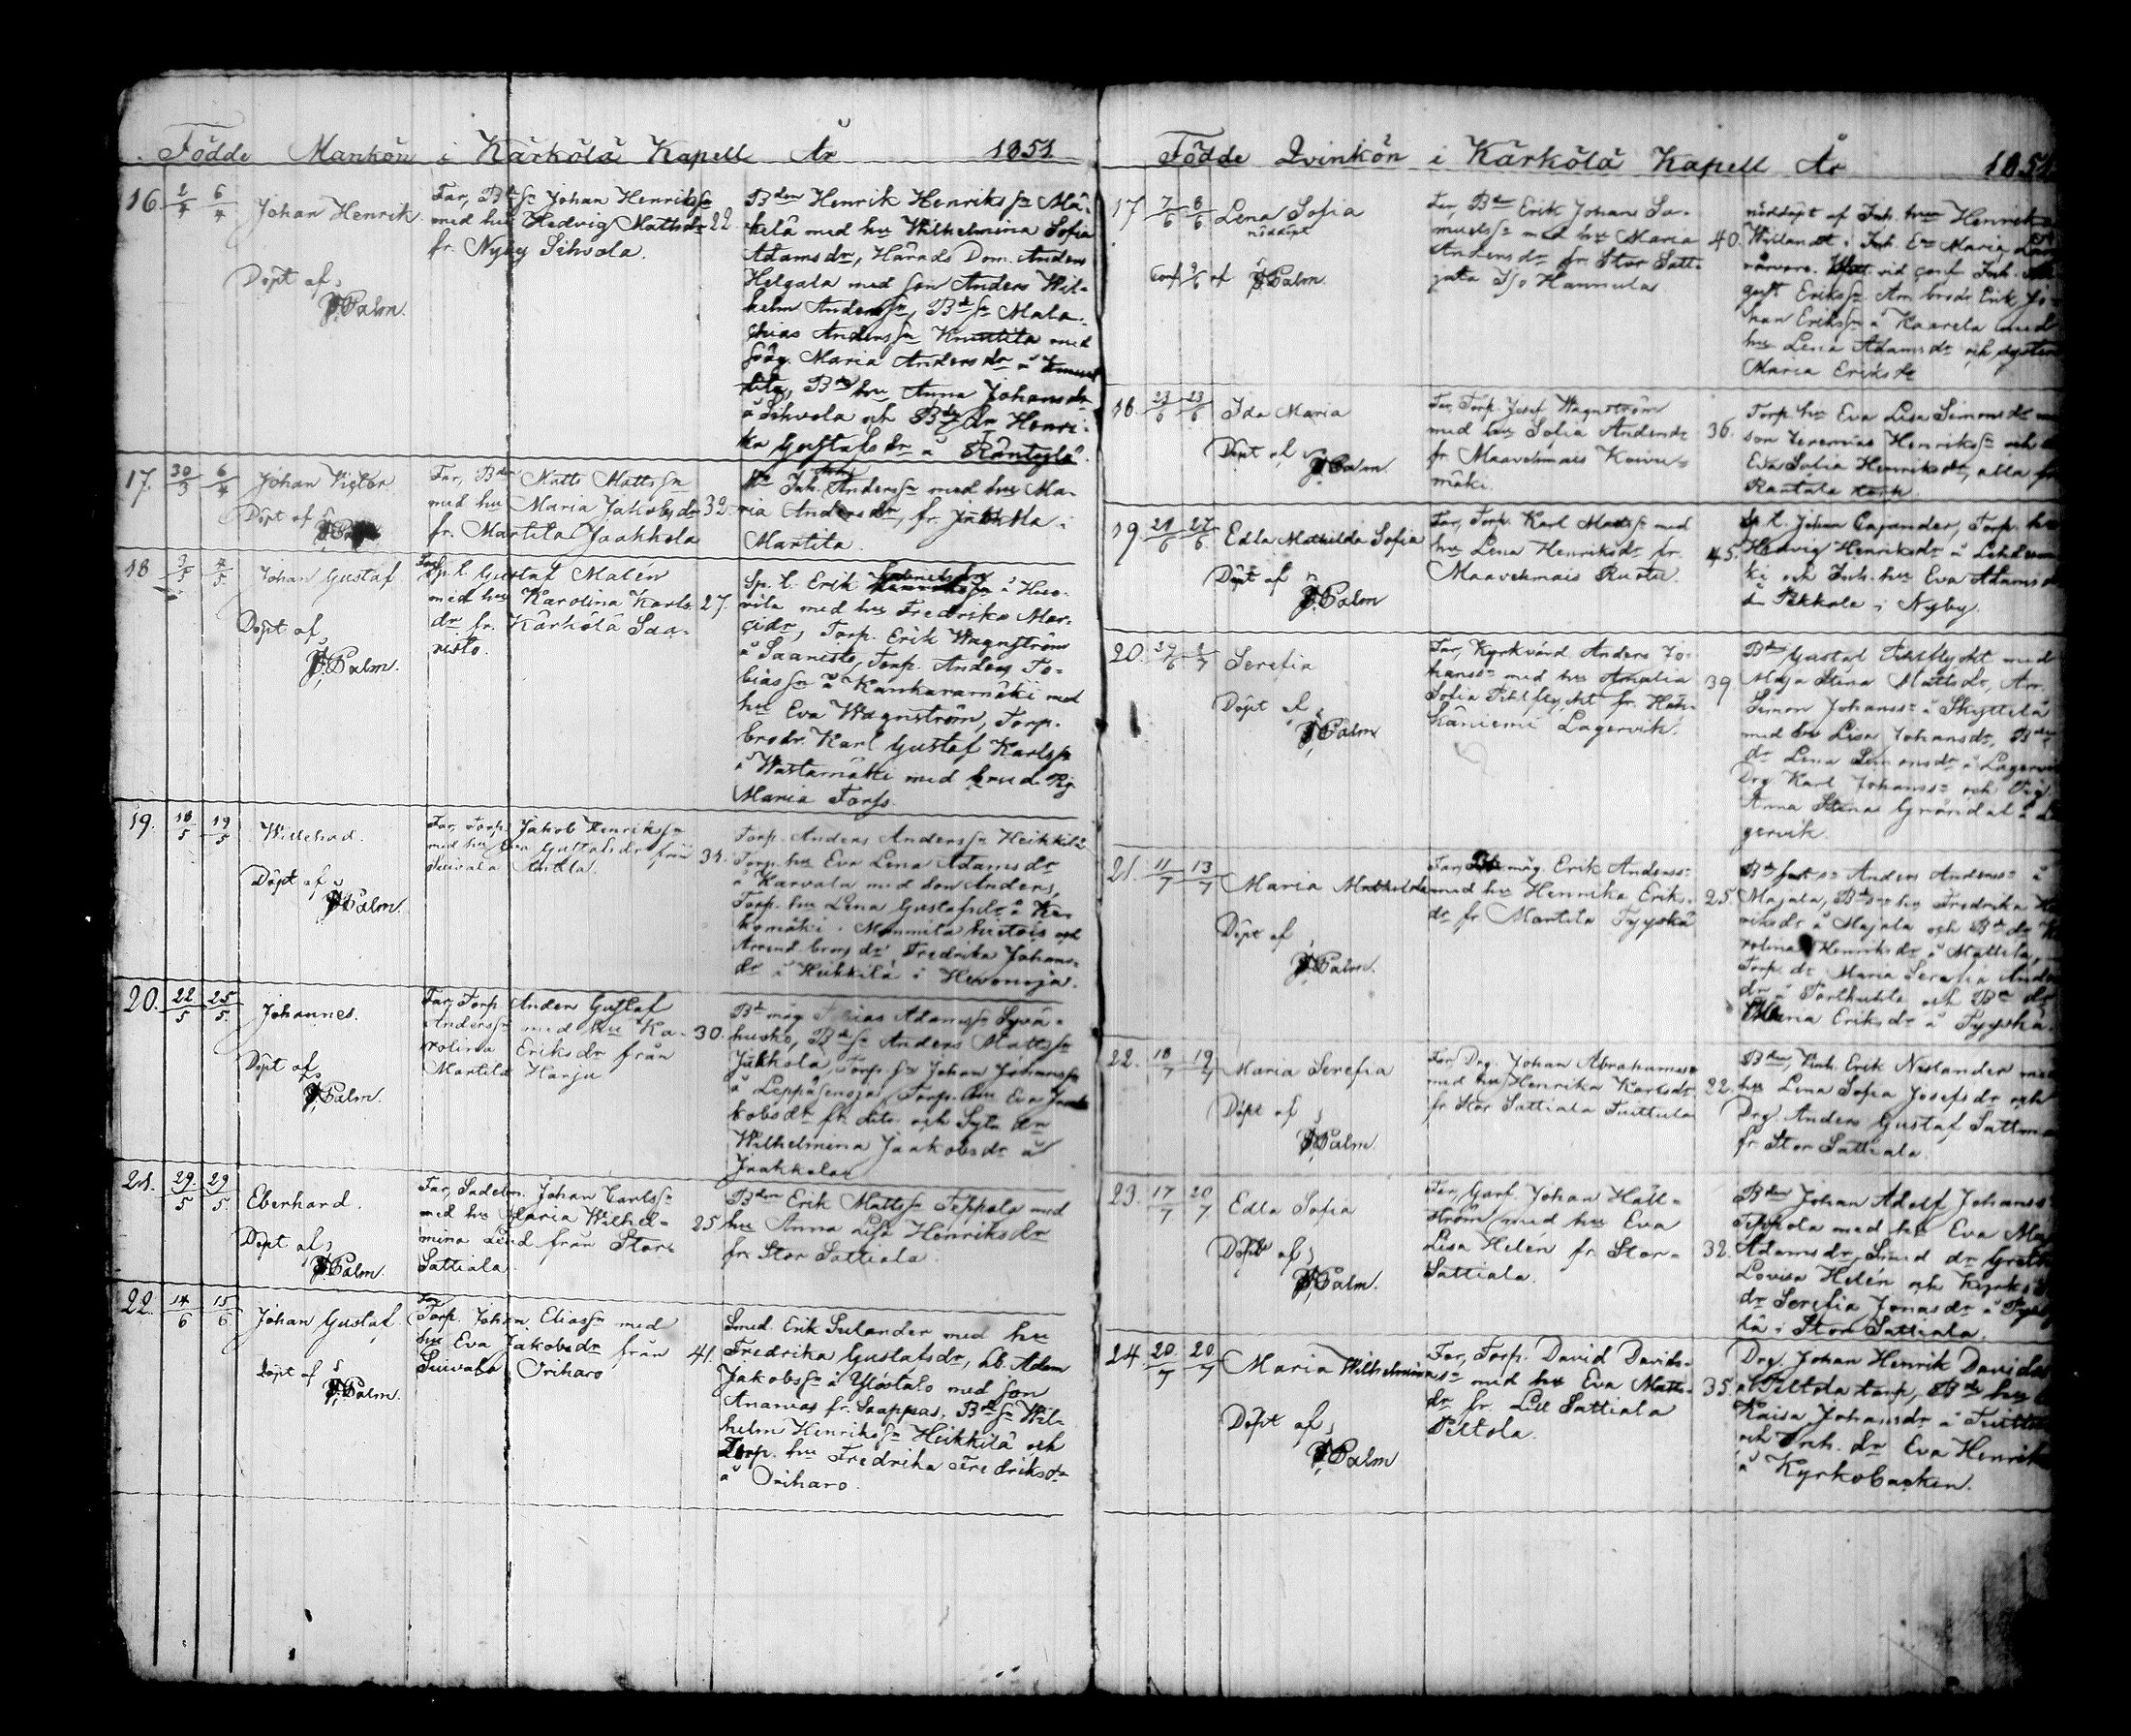 Födde Mankön i Kärkölä Kapell År 1851.
16. 2/4 6/4 Johan Henrik.
Döpt af
JPalm.
Far, Bde Sn Johan Henrikssn
med hu Hedvig Mattsdr 22.
fr. Nyby Sihvola.
Bden Henrik Henrikssn Mä-
kelä med hu Wilhelmina Sofia
Adamsdr, Härads Dom. Anders
Helgala med son Anders Wil-
helm Anderssn, Bde Sn Mala-
chias Anderssn Knuutila med
Maria Andersdr
Bde hu Anna Johansdr
å Sihvola och Bde dr Henri-
ka Gustafsdr å Räntylä.
17. 30/3 6/4 Johan Victor
Döpt af
JPalm
Far, Bden Matts Mattssn
med hu Maria Jakobsdr 32.
fr. Martila Jaakkola
Inh. Anderssn med hu Ma-
ria Andersdr, fr.
Martila.
18 3/5 4/5 Johan Gustaf.
Döpt af
JPalm.
Far
Sp. l. Gustaf Malén
med hu Karolina Karls- 27.
dr fr. Kärkölä Saa-
risto.
Sp. l. Erik å Huo-
vila med hu Fredrika Mar-
cidr, Torp. Erik Wagnström
å Saaristo, Torp. Anders To-
biassn å Kankaramäki med
hu Eva Wagnström, Torp.
brodr. Karl Gustaf Karlssn
å Wastamäki med brud. Pig.
Maria Torps.
19. 18/5 19/5 Willehad.
Döpt af
JPalm.
Far, Torp. Jakob Henrikssn
med hu Eva Gustafsdr från 31.
Anttla.
Torp. Anders Anderssn Heikkilä
Torp. hu Eva Lena Adamsdr
å Karvala med son Anders,
Torp. hu Lena Gustafsdr å Ke-
komäki i Mommila och
Arrend. brors dr Fredrika Johans-
dr å Heikkilä i Hevonoja.
20. 22/5 25/5 Johannes.
Döpt af
JPalm.
Far, Torp. Anders Gustaf
Anderssn med hu Ka- 30.
rolina Eriksdr från
Martila Harju
Bde måg Adamssn Syvä-
husko, Bde Sn Anders Mattssn
Jaakkola, Torp. Sn Johan Johanssn
å Leppäsenoja, Torp. hu Eva Jaa-
kobsdr fr. dito och Sytn. dr
Wilhelmina Jaakobsdr å
Jaakkola
21. 29/5 29/5 Eberhard.
Döpt af
JPalm.
Far, Sadelm. Johan Carlssn
med hu Maria Wilhel- 25
mina Lind från Stor
Sattiala.
Bden Erik Mattssn Teppola med
hu Anna Lisa Henriksdr
fr. Stor Sattiala.
22. 14/6 15/6 Johan Gustaf.
Döpt af
JPalm.
Far
Torp. Johan Eliassn med
hu Eva Jakobsdr från 41.
Oriharo
Smed. Erik Sulander med hu
Fredrika Gustafsdr, Adam
Jakobssn å Ylöstalo med son
Ananias fr. Saappas, Bde Sn Wil-
helm Henrikssn Heikkilä och
Torp. hu Fredrika Fredriksdr
å Oriharo.
Födde Qvinkön i Kärkölä Kapell År 1851
17 7/6 8/6 Lena Sofia
nöddöpt
Conf. 9/6 af JPalm.
Far, Bden Erik Johans Sa-
muelssn med hu Maria 40.
Andersdr fr. Stor Satti-
Iso Hannula
nöddöpt af Inh. hu Henrika
Inh. Eva Maria
närvaro. vid conf. Inh.
gust Erikssn. Arr. brodr. Erik Jo-
han Erikssn å Kaarela med
hu Lena Adamsdr och systern
Maria Eriksdr
18. 23/6 23/6 Ida Maria
Döpt af
JPalm.
Far, Torp. Josef Wagnström
med hu Sofia Andersdr 36.
fr. Maavehmais Koivu-
mäki.
Torp. hu Eva Lisa Simonsdr
son Jeremias Henrikssn och
Eva Sofia Henriksdr, alla fr.
Rantala torp.
19 21/6 27/6 Edla Mathilda Sofia
Döpt af
JPalm
Far, Torp. Karl Mattssn med
hu Lena Henriksdr fr. 45.
Maavehmais Ruotu.
Sp. l. Johan Cajander, Torp. hu
Hedvig Henriksdr å
ki och Inh. hu Eva Adamsdr
Pekkola i Nyby.
20. 29/6 1/7 Serefia
Döpt af
JPalm
Far, Kyrkvärd Anders Jo-
hanssn med hu Amalia 39
Sofia fr. Häh-
käniemi Lagervik.
Bden Gustaf med
Maja Stina Mattsdr, Arr.
Simon Johanssn å Skyttelä
med hu Lisa Johansdr, Bden
dr Lena Simonsdr å Lager
Drg Karl Johanssn och Pig.
Anna Stina Gröndal å La
gervik.
21. 11/7 13/7 Maria Mathilda
Döpt af
JPalm.
Far, måg. Erik Anderssn
med hu Henrika Eriks- 25.
dr fr. Martila Tyyskä
Anders Anderssn å
Majala, hu Fredrika
riksdr å Majala och Bde dr
rolina Henriksdr å Mattila,
Torp. dr Maria Serefia Ande
dr å och Bde dr
Maria Eriksdr å Tyyskä.
22. 18/7 19/7 Maria Serefia
Döpt af
JPalm.
Far, Drg. Johan Abrahamssn
med hu Henrika Karlsdr 22.
fr. Stor Sattiala Tuittula
Bden, Erik Neslander med
hu Lena Sofia Josefsdr och
Drg. Anders Gustaf
fr. Stor Sattiala.
23. 17/7 20/7 Edla Sofia
Döpt af
JPalm.
Far, Garf. Johan Häll-
ström med hu Eva
Lisa Helén fr. Stor- 32.
Sattiala.
Bden Johan Adolf Johans
Teppola med hu Eva Ma
Adamsdr, Smed dr Greta
Lovisa Helén och
dr Serefia Jonasdr å
lä i Stor Sattiala.
24. 20/7 20/7 Maria Wilhelmina
Döpt af
JPalm
Far, Torp. David Davids-
sn med hu Eva Matts- 35.
dr fr. Lill Sattiala
Peltola.
Drg. Johan Henrik Davids
å Peltola torp, Bde hu
Kaisa Johansdr å
och Inh. dr Eva Henriks
å Kyrkobacken.